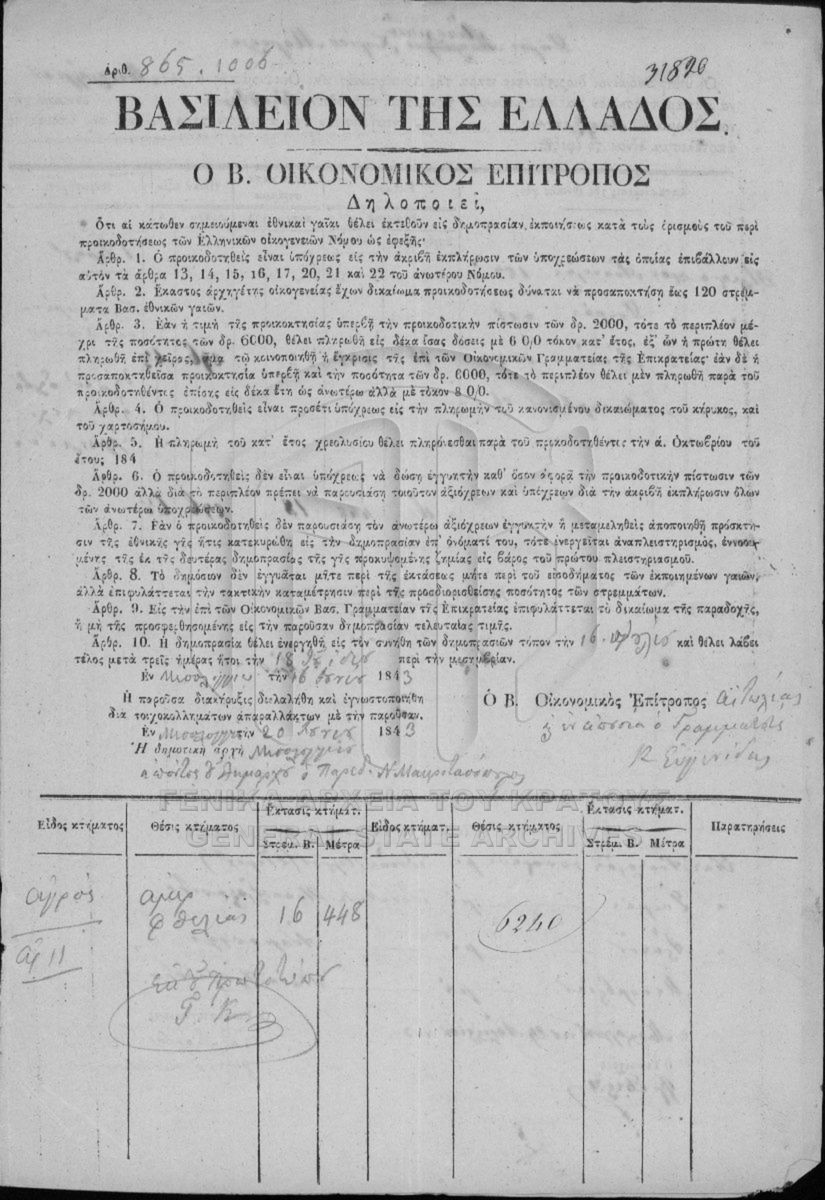 Ἀριθ. 865. 1006
31820
ΒΑΣΙΛΕΙΟΝ ΤΗΣ ΕΛΛΑΔΟΣ.
Ο Β. ΟΙΚΟΝΟΜΙΚΟΣ ΕΠΙΤΡΟΠΟΣ
Δηλοποιεῖ,
Ὅτι αἱ κάτωθεν σημειούμεναι ἐθνικαὶ γαῖαι θέλει ἐκτεθοῦν εἰς δημοπρασίαν ἐκποιήσεως κατὰ τοὺς ὁρισμοὺς τοῦ περὶ
προικοδοτήσεως τῶν Ἑλληνικῶν οἰκογενειῶν Νόμου ὡς ἐφεξῆς·
Ἄρθρ. 1. Ὁ προικοδοτηθεὶς εἶναι ὑπόχρεως εἰς τὴν ἀκριβῆ ἐκπλήρωσιν τῶν ὑποχρεώσεων τὰς ὁποίας ἐπιβάλλουν εἰς
αὐτὸν τὰ ἄρθρα 13, 14, 15, 16, 17, 20, 21 καὶ 22 τοῦ ἀνωτέρω Νόμου.
Ἄρθρ. 2. Ἕκαστος ἀρχηγέτης οἰκογενείας ἔχων δικαίωμα προικοδοτήσεως δύναται νὰ προσαποκτήσῃ ἕως 120 στρέμ-
ματα Βασ. ἐθνικῶν γαιῶν.
Ἄρθρ. 3. Ἐὰν ἡ τιμὴ τῆς προικοκτησίας ὑπερβῇ τὴν προικοδοτικὴν πίστωσιν τῶν δρ. 2000, τότε τὸ περιπλέον μέ-
χρι τῆς ποσότητος τῶν δρ. 6000, θέλει πληρωθῆ εἰς δέκα ἴσας δόσεις μὲ 6 0/0 τόκον κατ' ἔτος, ἐξ' ὧν ἡ πρώτη θέλει
πληρωθῆ ἐπὶ χεῖρας, ἅμα τῷ κοινοποιηθῇ ἡ ἔγκρισις τῆς ἐπὶ τῶν Οἰκονομικῶν Γραμματείας τῆς Ἐπικρατείας· ἐὰν δὲ ἡ
προσαποκτηθεῖσα προικοκτησία ὑπερβῇ καὶ τὴν ποσότητα τῶν δρ. 6000, τότε τὸ περιπλέον θέλει μὲν πληρωθῆ παρὰ τοῦ
προικοδοτηθέντος ἐπίσης εἰς δέκα ἔτη ὡς ἀνωτέρω ἀλλὰ μὲ τόκον 8 0/0.
Ἄρθρ. 4. Ὁ προικοδοτηθεὶς εἶναι προσέτι ὑπόχρεως εἰς τὴν πληρωμὴν τοῦ κανονισμένου δικαιώματος τοῦ κήρυκος, καὶ
τοῦ χαρτοσήμου.
Ἄρθρ. 5. Ἡ πληρωμὴ τοῦ κατ' ἔτος χρεολυσίου θέλει πληροῦσθαι παρὰ τοῦ προικοδοτηθέντος τὴν ά. Ὀκτωβρίου τοῦ
ἔτους 184
Ἄρθρ. 6. Ὁ προικοδοτηθεὶς δὲν εἶναι ὑπόχρεως νὰ δώσῃ ἐγγυητὴν καθ' ὅσον ἀφορᾷ τὴν προικοδοτικὴν πίστωσιν τῶν
δρ. 2000 ἀλλὰ διὰ τὸ περιπλέον πρέπει νὰ παρουσιάσῃ τοιοῦτον ἀξιόχρεων καὶ ὑπόχρεων διὰ τὴν ἀκριβῆ ἐκπλήρωσιν ὅλων
τῶν ἀνωτέρω ὑποχρεώσεων.
Ἄρθρ. 7. Ἐὰν ὁ προικοδοτηθεὶς δὲν παρουσιάσῃ τὸν ἀνωτέρω ἀξιόχρεων ἐγγυητὴν ἢ μεταμεληθεὶς ἀποποιηθῇ πρόσκτη-
σιν τῆς ἐθνικῆς γῆς ἥτις κατεκυρώθη εἰς τὴν δημοπρασίαν ἐπ' ὀνόματί του, τότε ἐνεργεῖται ἀναπλειστηρισμὸς, ἐννοου-
μένης τῆς ἐκ τῆς δευτέρας δημοπρασίας τῆς γῆς προκυψομένης ζημίας εἰς βάρος τοῦ πρώτου πλειστηριασμοῦ.
Ἄρθρ. 8. Τὸ δημόσιον δὲν ἐγγυᾶται μήτε περὶ τῆς ἐκτάσεως μήτε περὶ τοῦ εἰσοδήματος τῶν ἐκποιημένων γαιῶν,
ἀλλὰ ἐπιφυλάττεται τὴν τακτικὴν καταμέτρησιν περὶ τῆς προσδιορισθείσης ποσότητος τῶν στρεμμάτων.
Ἄρθρ. 9. Εἰς τὴν ἐπὶ τῶν Οἰκονομικῶν Βασ. Γραμματείαν τῆς Ἐπικρατείας ἐπιφυλάττεται τὸ δικαίωμα τῆς παραδοχῆς,
ἢ μὴ τῆς προσφερθησομένης εἰς τὴν παροῦσαν δημοπρασίαν τελευταίας τιμῆς.
Ἄρθρ. 10. Ἡ δημοπρασία θέλει ἐνεργηθῆ εἰς τὸν συνήθη τῶν δημοπρασιῶν τόπον τὴν 16 Ἰουλίου καὶ θέλει λάβει
τέλος μετὰ τρεῖς ἡμέρας ἤτοι τὴν 18 τοῦ ἰδίου περὶ τὴν μεσημβρίαν.
Ἐν Μεσολογγίῳ τὴν 16 Ἰουνίου 1843
Ἡ παροῦσα διακήρυξις διελαλήθη καὶ ἐγνωστοποιήθη
διὰ τοιχοκολλημάτων ἀπαραλλάκτων μὲ τὴν παροῦσαν.
Ἐν Μεσολογγίῳ τὴν 20 Ἰουνίου 1843
Ἡ δημοτικὴ ἀρχὴ Μεσολογγίου
ἀπόντος τοῦ Δημάρχου ὁ Παρεδ.
Ὁ Β. Οἰκονομικὸς Ἐπίτροπος Αἰτωλίας
ἐν ἀπουσίᾳ ὁ Γραμματεὺς
ΓΕΝΙΚΑ ΑΡΧΕΙΑ ΤΟΥ ΚΡΑΤΟΥΣ
GENERAL STATE ARCHIVES
Εἶδος κτήματος Θέσις κτήματος Ἔκτασις κτήματ. Εἶδος κτήματ. Θέσις κτήματος Ἔκτασις κτήματ. Παρατηρήσεις
Στρέμ. Β. Μέτρα Στρέμ. Β. Μέτρα
ἀγρὸς 16 448 6240
ἀρ 11